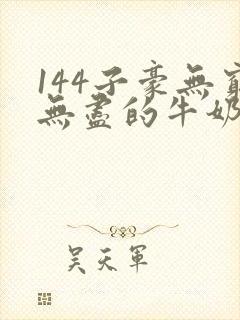 144子豪無窮
無盡的牛奶
吳天軍